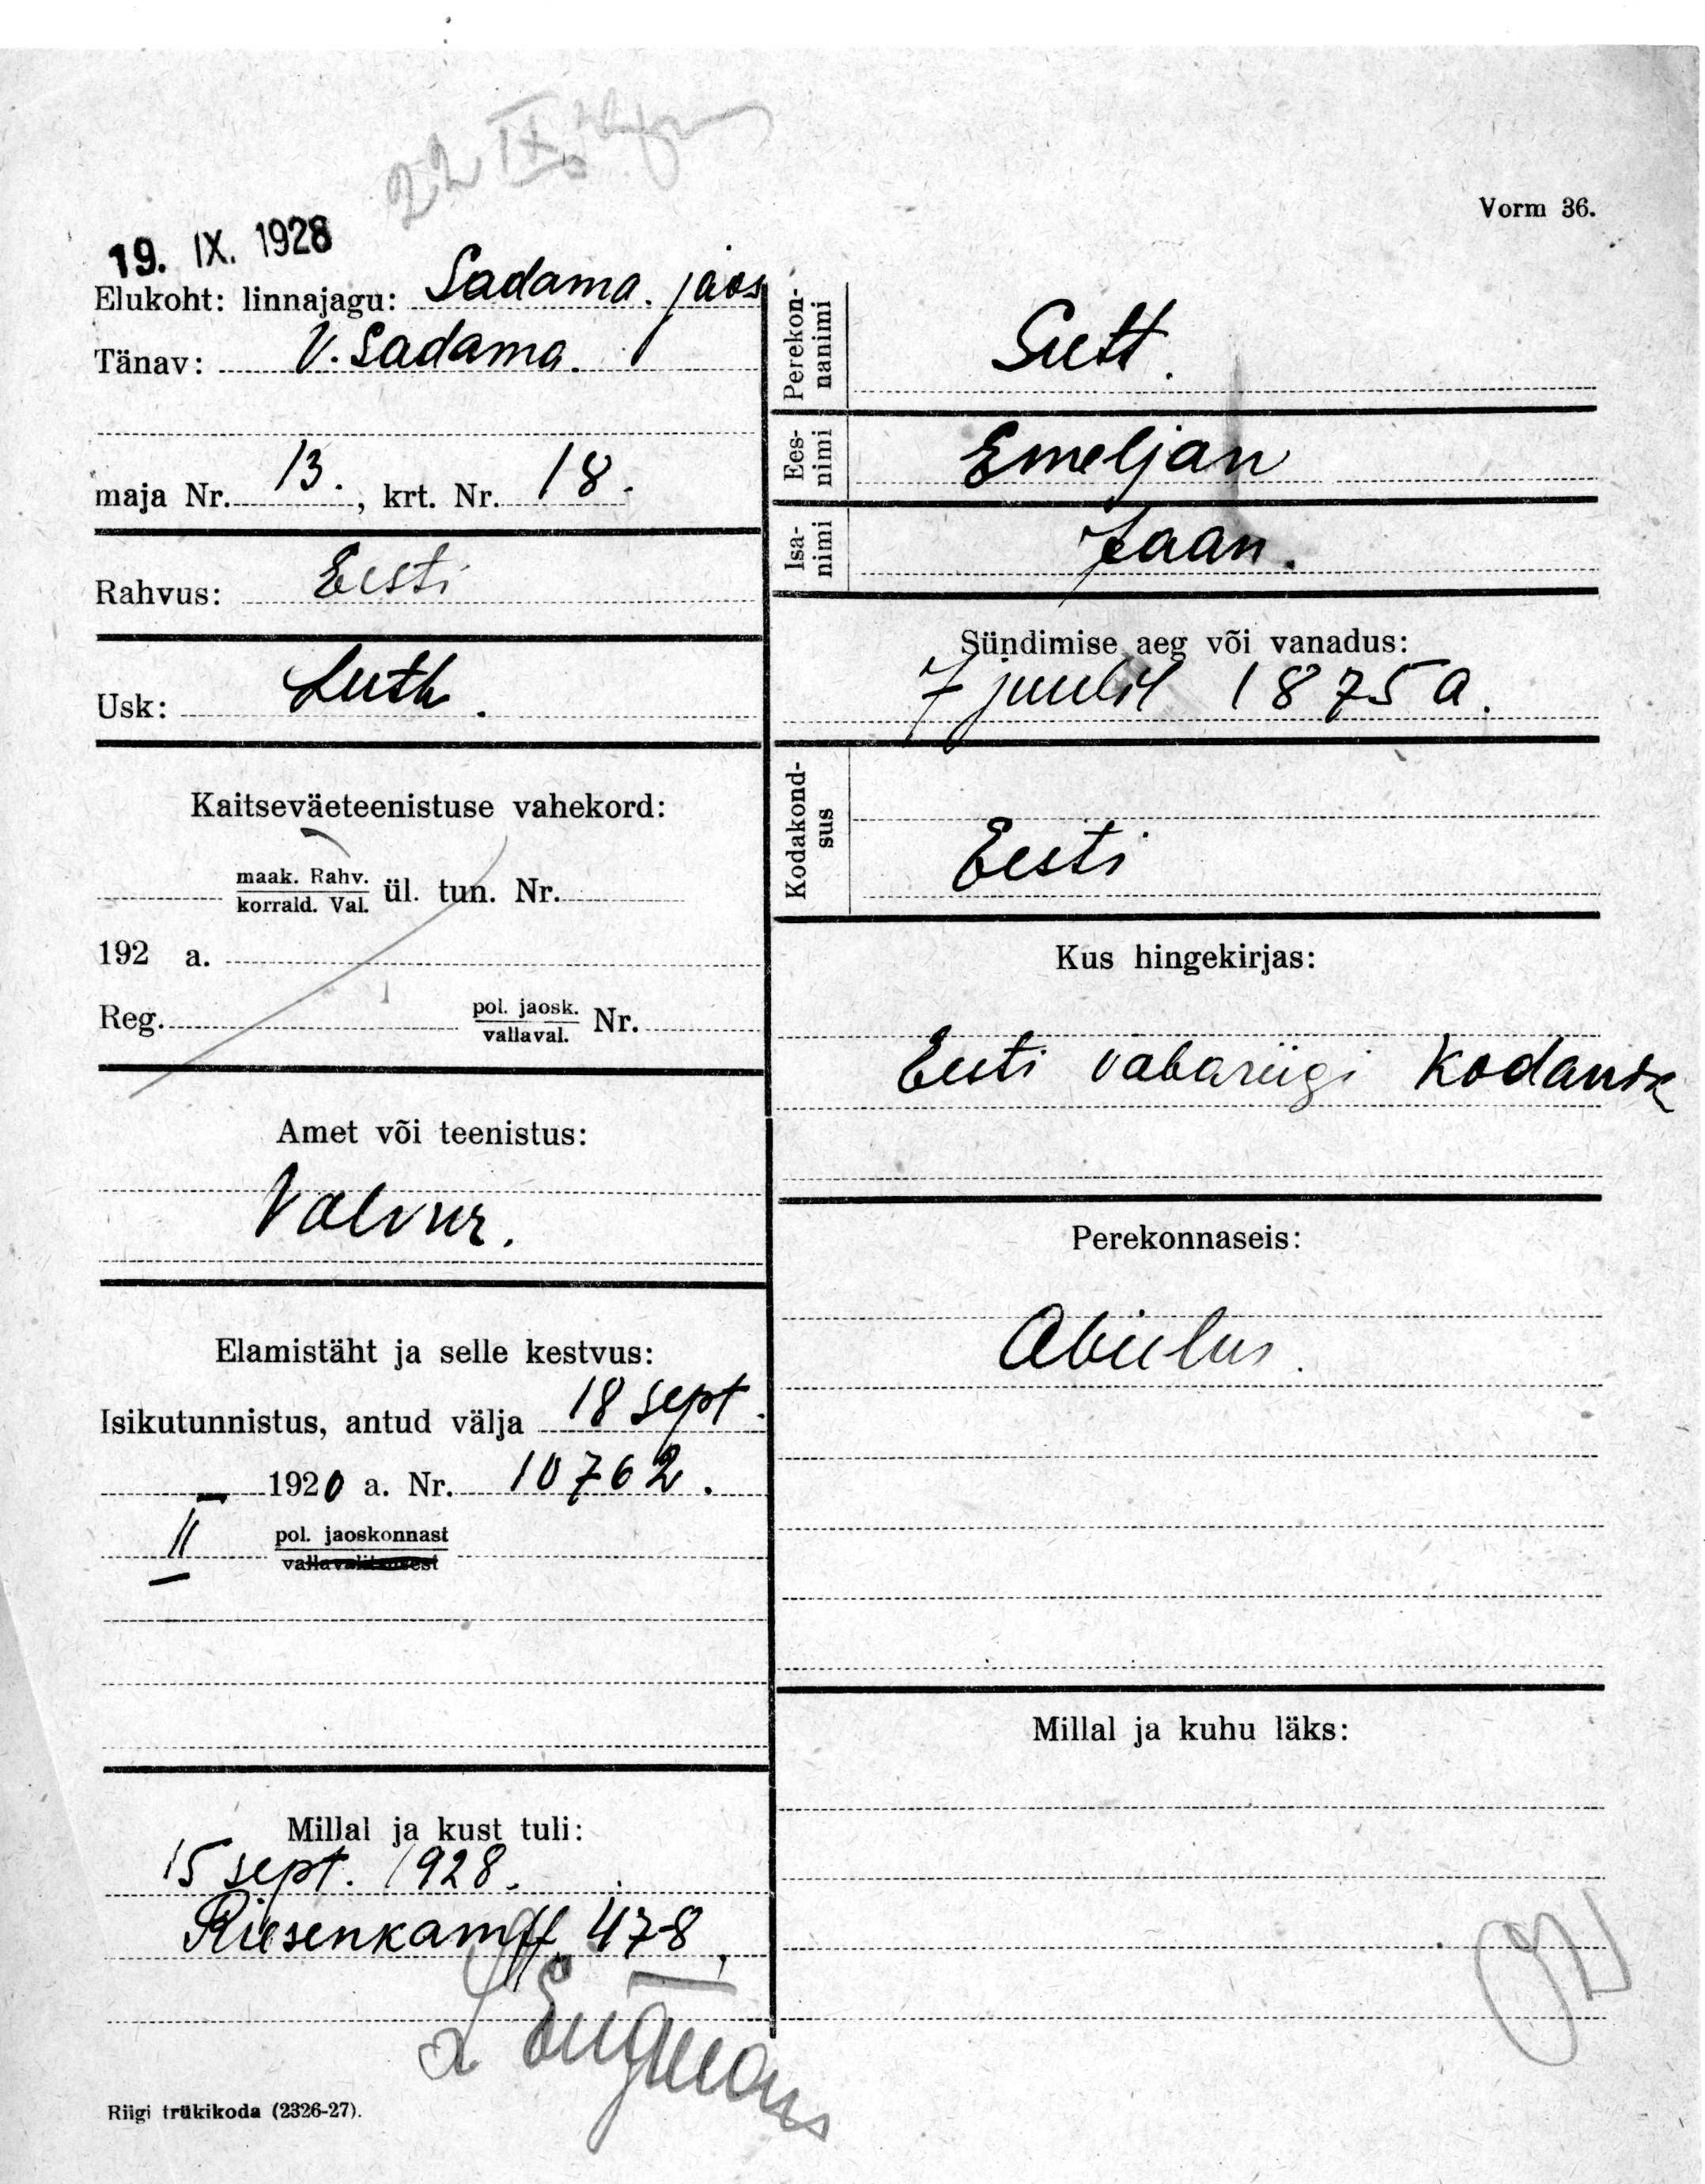 22 IX
Vorm 36.
19. IX. 1928
Elukoht: linnajagu: Sadama. jaos
Tänav: V. Sadama.
maja Nr. 13., krt. Nr. 18.
Rahvus: Eesti
Usk: Luth.
Kaitseväeteenistuse vahekord:
maak. Rahv.
korrald. Val. ül. tun. Nr.
192 a.
Reg. pol. jaosk.
vallaval. Nr.
Amet või teenistus:
Valvur.
Elamistäht ja selle kestvus:
Isikutunnistus, antud välja 18 sept.
1920 a. Nr. 10762.
II pol. jaoskonnast
vallavalitsusest
Millal ja kust tuli:
15 sept. 1928.
Riesenkampff 47-8
Riigi trükikoda (2326-27).
Perekon-
nanimi
Sutt.
Ees-
nimi
Emeljan
Isa-
nimi
Jaan.
Sündimise aeg või vanadus:
7 juulil 1875 a.
Kodakond-
sus
Eesti
Kus hingekirjas:
Eesti vabariigi kodanik
Perekonnaseis:
Abielus.
Millal ja kuhu läks: